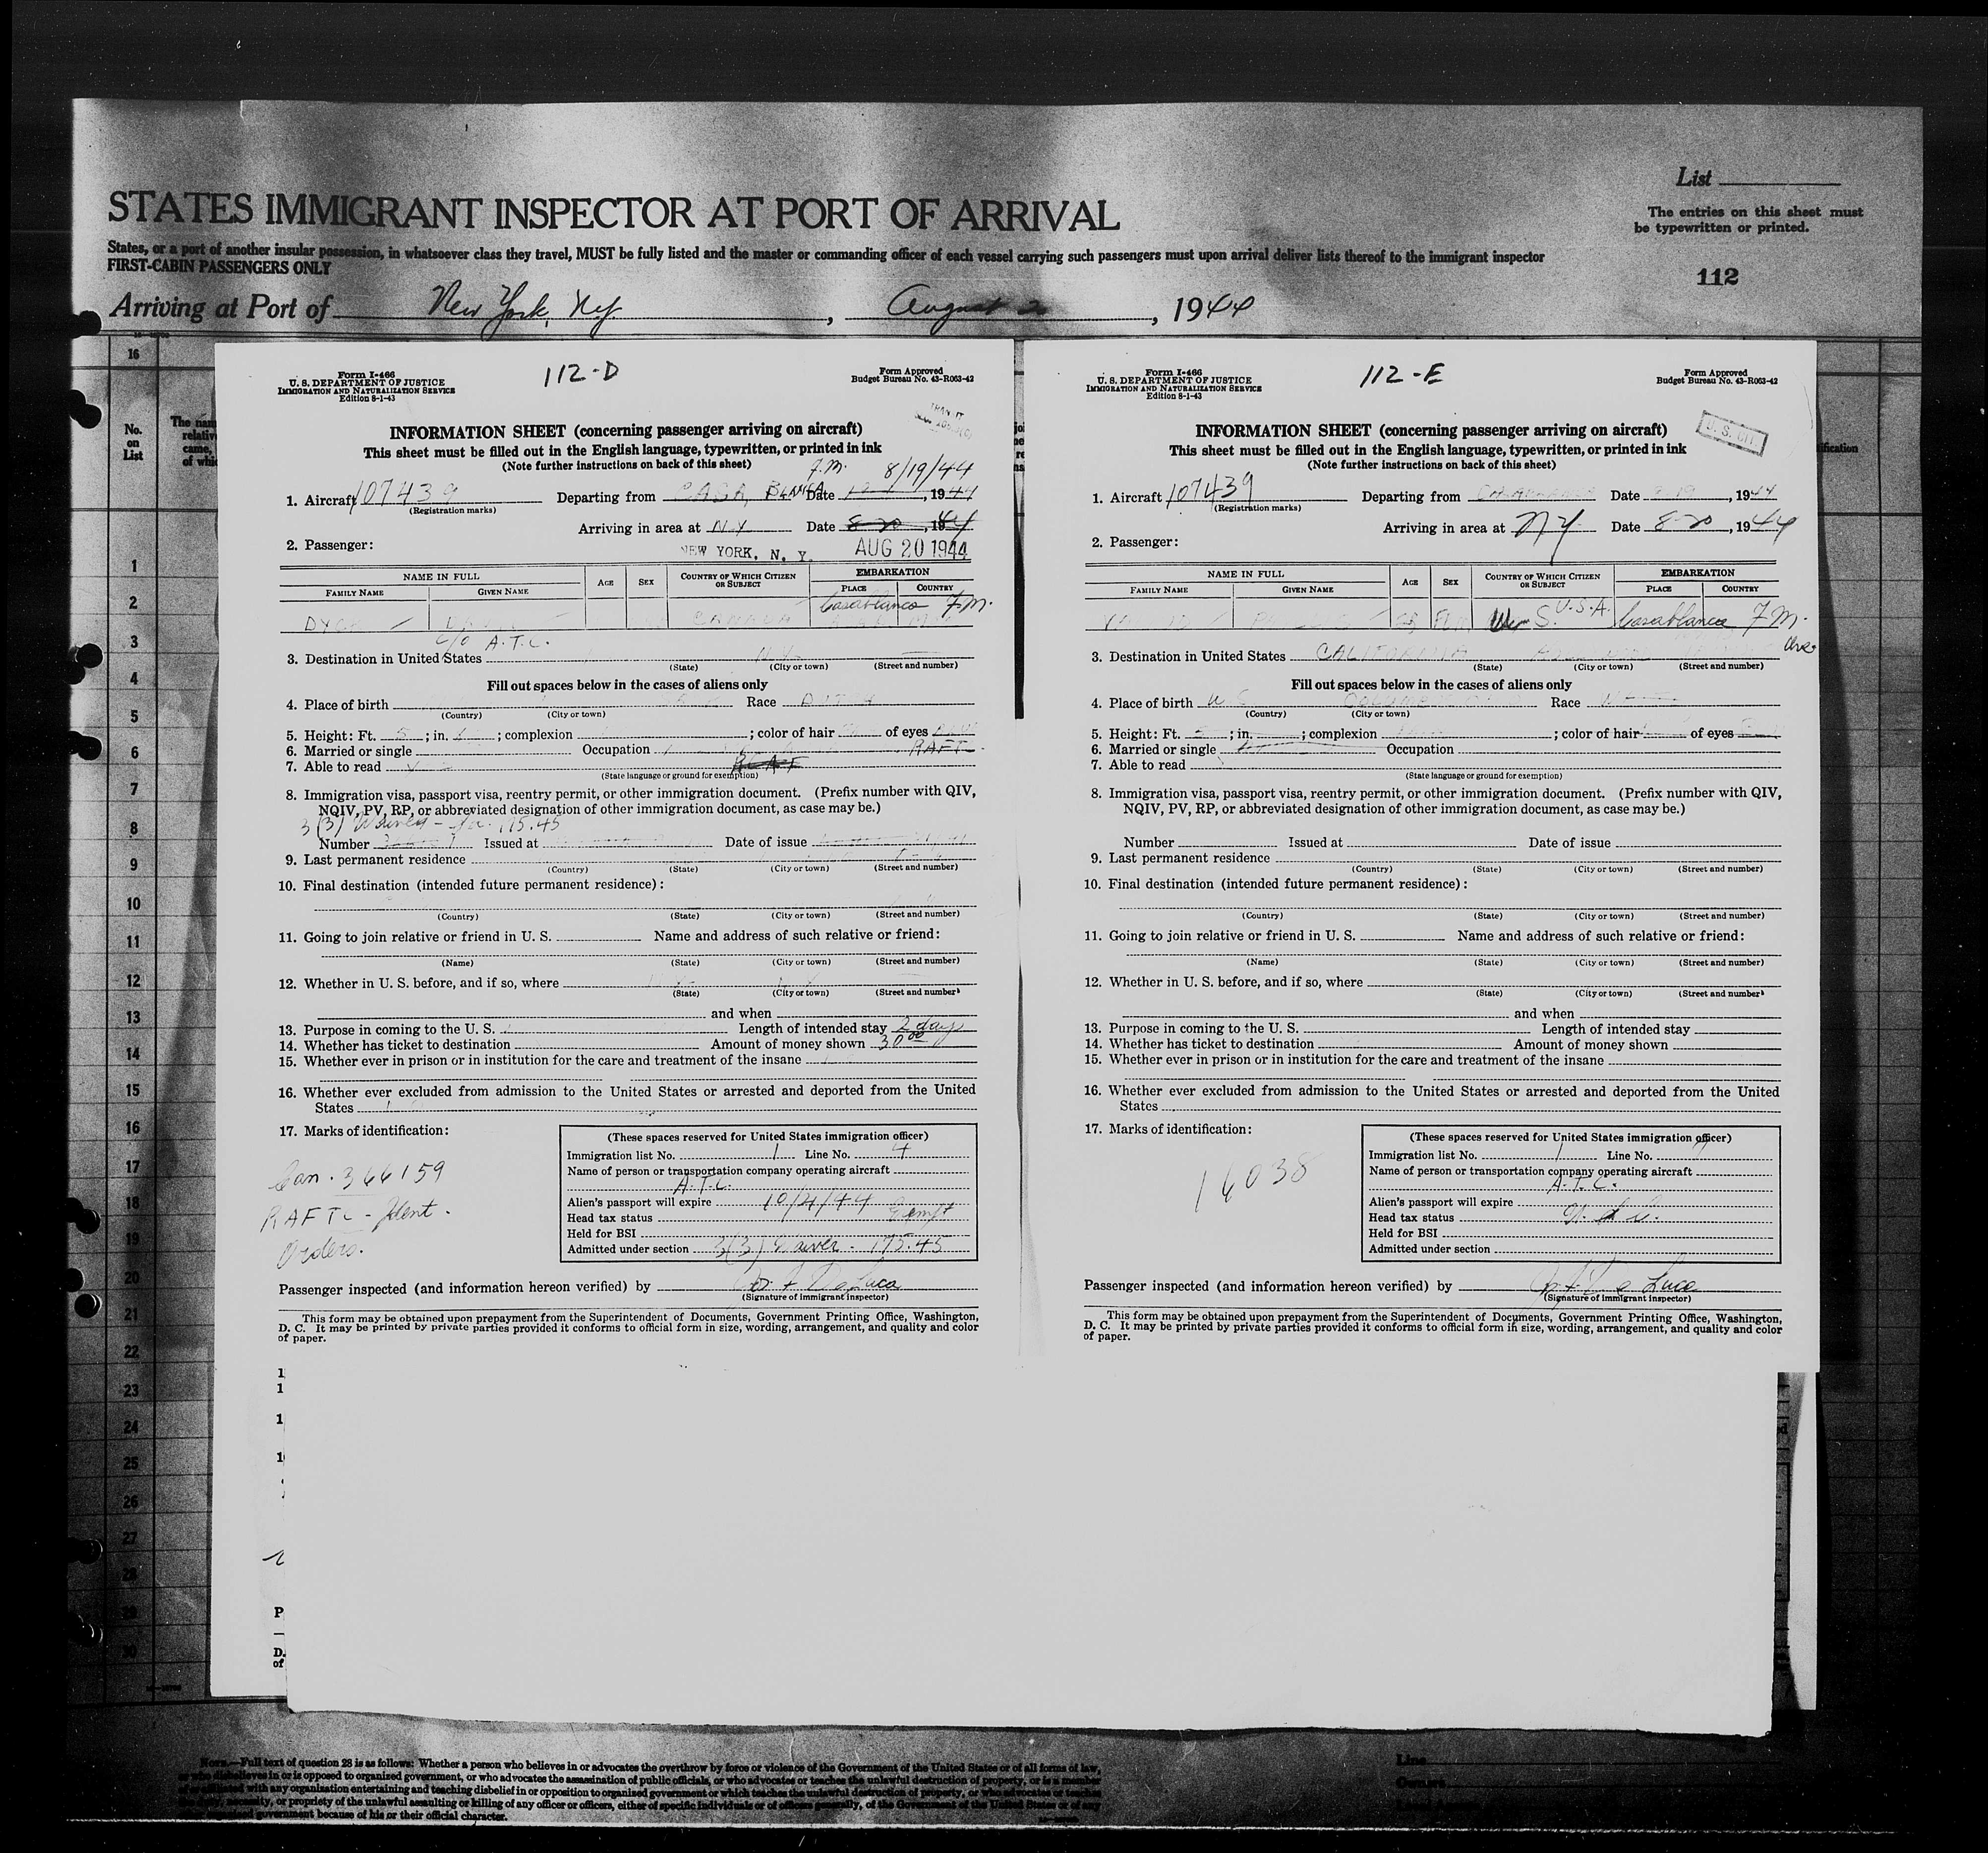 STATES IMMIGRANT INSPECTOR AT PORT OF ARRIVAL
List
The entries on this sheet must
be typewritten or printed.
States, or a port of another insular possession, in whatsoever class they travel, MUST be fully listed and the master or commanding officer of each vessel carrying such passengers must upon arrival deliver lists thereof to the immigrant inspector
FIRST-CABIN PASSENGERS ONLY
112
Arriving at Port of New York, NY, August, 1944
16
No.
on
List
The nam
relativ
came,
of whic
1
2
3
4
5
6
7
8
9
10
11
12
13
14
15
16
17
18
19
20
21
22
23
24
25
26
27
28
29
30
Form I-466
U. S. DEPARTMENT OF JUSTICE
IMMIGRATION AND NATURALIZATION SERVICE
Edition 8-1-43
112-D
Form Approved
Budget Bureau No. 43-R063-42
INFORMATION SHEET (concerning passenger arriving on aircraft)
This sheet must be filled out in the English language, typewritten, or printed in ink
(Note further instructions on back of this sheet)
F.M. 8/19/44
1. Aircraft 107439 Departing from CASA BLANCA Date , 1944
(Registration marks)
Arriving in area at N.Y. Date 8-20, 1944
2. Passenger:
NEW YORK, N. Y. AUG 20 1944
NAME IN FULL AGE SEX COUNTRY OF WHICH CITIZEN OR SUBJECT EMBARKATION
FAMILY NAME GIVEN NAME PLACE COUNTRY
CANADA Casablanca F.M.
c/o A.T.C.
3. Destination in United States N.Y.
(State) (City or town) (Street and number)
Fill out spaces below in the cases of aliens only
4. Place of birth Race
(Country) (City or town)
5. Height: Ft. 5; in. ; complexion ; color of hair of eyes
6. Married or single Occupation RAFTC
7. Able to read
(State language or ground for exemption)
8. Immigration visa, passport visa, reentry permit, or other immigration document. (Prefix number with QIV,
NQIV, PV, RP, or abbreviated designation of other immigration document, as case may be.)
3(3) Waived - 175.45
Number Issued at Date of issue
9. Last permanent residence
(Country) (State) (City or town) (Street and number)
10. Final destination (intended future permanent residence):
(Country) (State) (City or town) (Street and number)
11. Going to join relative or friend in U. S. Name and address of such relative or friend:
(Name) (State) (City or town) (Street and number)
12. Whether in U. S. before, and if so, where
(State) (City or town) (Street and number)
and when
13. Purpose in coming to the U. S. Length of intended stay 2 days
14. Whether has ticket to destination Amount of money shown 30.00
15. Whether ever in prison or in institution for the care and treatment of the insane
16. Whether ever excluded from admission to the United States or arrested and deported from the United
States
17. Marks of identification:
Can. 366159
RAFTC - Ident.
Orders.
(These spaces reserved for United States immigration officer)
Immigration list No. 1 Line No. 4
Name of person or transportation company operating aircraft
A.T.C.
Alien's passport will expire 10/4/44
Head tax status Exempt
Held for BSI
Admitted under section 3(3) Waiver. 175.45
Passenger inspected (and information hereon verified) by Jos. F. DeLuca
(Signature of immigrant inspector)
This form may be obtained upon prepayment from the Superintendent of Documents, Government Printing Office, Washington,
D. C. It may be printed by private parties provided it conforms to official form in size, wording, arrangement, and quality and color
of paper.
Form I-466
U. S. DEPARTMENT OF JUSTICE
IMMIGRATION AND NATURALIZATION SERVICE
Edition 8-1-43
112-E
Form Approved
Budget Bureau No. 43-R063-42
U. S. CIT.
INFORMATION SHEET (concerning passenger arriving on aircraft)
This sheet must be filled out in the English language, typewritten, or printed in ink
(Note further instructions on back of this sheet)
1. Aircraft 107439 Departing from Date , 1944
(Registration marks)
Arriving in area at NY Date 8-20, 1944
2. Passenger:
NAME IN FULL AGE SEX COUNTRY OF WHICH CITIZEN OR SUBJECT EMBARKATION
FAMILY NAME GIVEN NAME PLACE COUNTRY
U.S.A. Casablanca F.M.
3. Destination in United States CALIFORNIA
(State) (City or town) (Street and number)
Fill out spaces below in the cases of aliens only
4. Place of birth Race
(Country) (City or town)
5. Height: Ft. ; in. ; complexion ; color of hair of eyes
6. Married or single Occupation
7. Able to read
(State language or ground for exemption)
8. Immigration visa, passport visa, reentry permit, or other immigration document. (Prefix number with QIV,
NQIV, PV, RP, or abbreviated designation of other immigration document, as case may be.)
Number Issued at Date of issue
9. Last permanent residence
(Country) (State) (City or town) (Street and number)
10. Final destination (intended future permanent residence):
(Country) (State) (City or town) (Street and number)
11. Going to join relative or friend in U. S. Name and address of such relative or friend:
(Name) (State) (City or town) (Street and number)
12. Whether in U. S. before, and if so, where
(State) (City or town) (Street and number)
and when
13. Purpose in coming to the U. S. Length of intended stay
14. Whether has ticket to destination Amount of money shown
15. Whether ever in prison or in institution for the care and treatment of the insane
16. Whether ever excluded from admission to the United States or arrested and deported from the United
States
17. Marks of identification:
16038
(These spaces reserved for United States immigration officer)
Immigration list No. 1 Line No.
Name of person or transportation company operating aircraft
A.T.C.
Alien's passport will expire
Head tax status
Held for BSI
Admitted under section
Passenger inspected (and information hereon verified) by Jos. F. De Luca
(Signature of immigrant inspector)
This form may be obtained upon prepayment from the Superintendent of Documents, Government Printing Office, Washington,
D. C. It may be printed by private parties provided it conforms to official form in size, wording, arrangement, and quality and color
of paper.
NOTE.—Full text of question 28 is as follows: Whether a person who believes in or advocates the overthrow by force or violence of the Government of the United States or of all forms of law,
or who disbelieves in or is opposed to organized government, or who advocates the assassination of public officials, or who advocates or teaches the unlawful destruction of property, or is a member
of or affiliated with any organization entertaining and teaching disbelief in or opposition to organized government or which teaches the unlawful destruction of property, or who advocates or teaches
the duty, necessity, or propriety of the unlawful assaulting or killing of any officer or officers, either of specific individuals or of officers generally, of the Government of the United States or of any
other organized government because of his or their official character.
Line
Owners